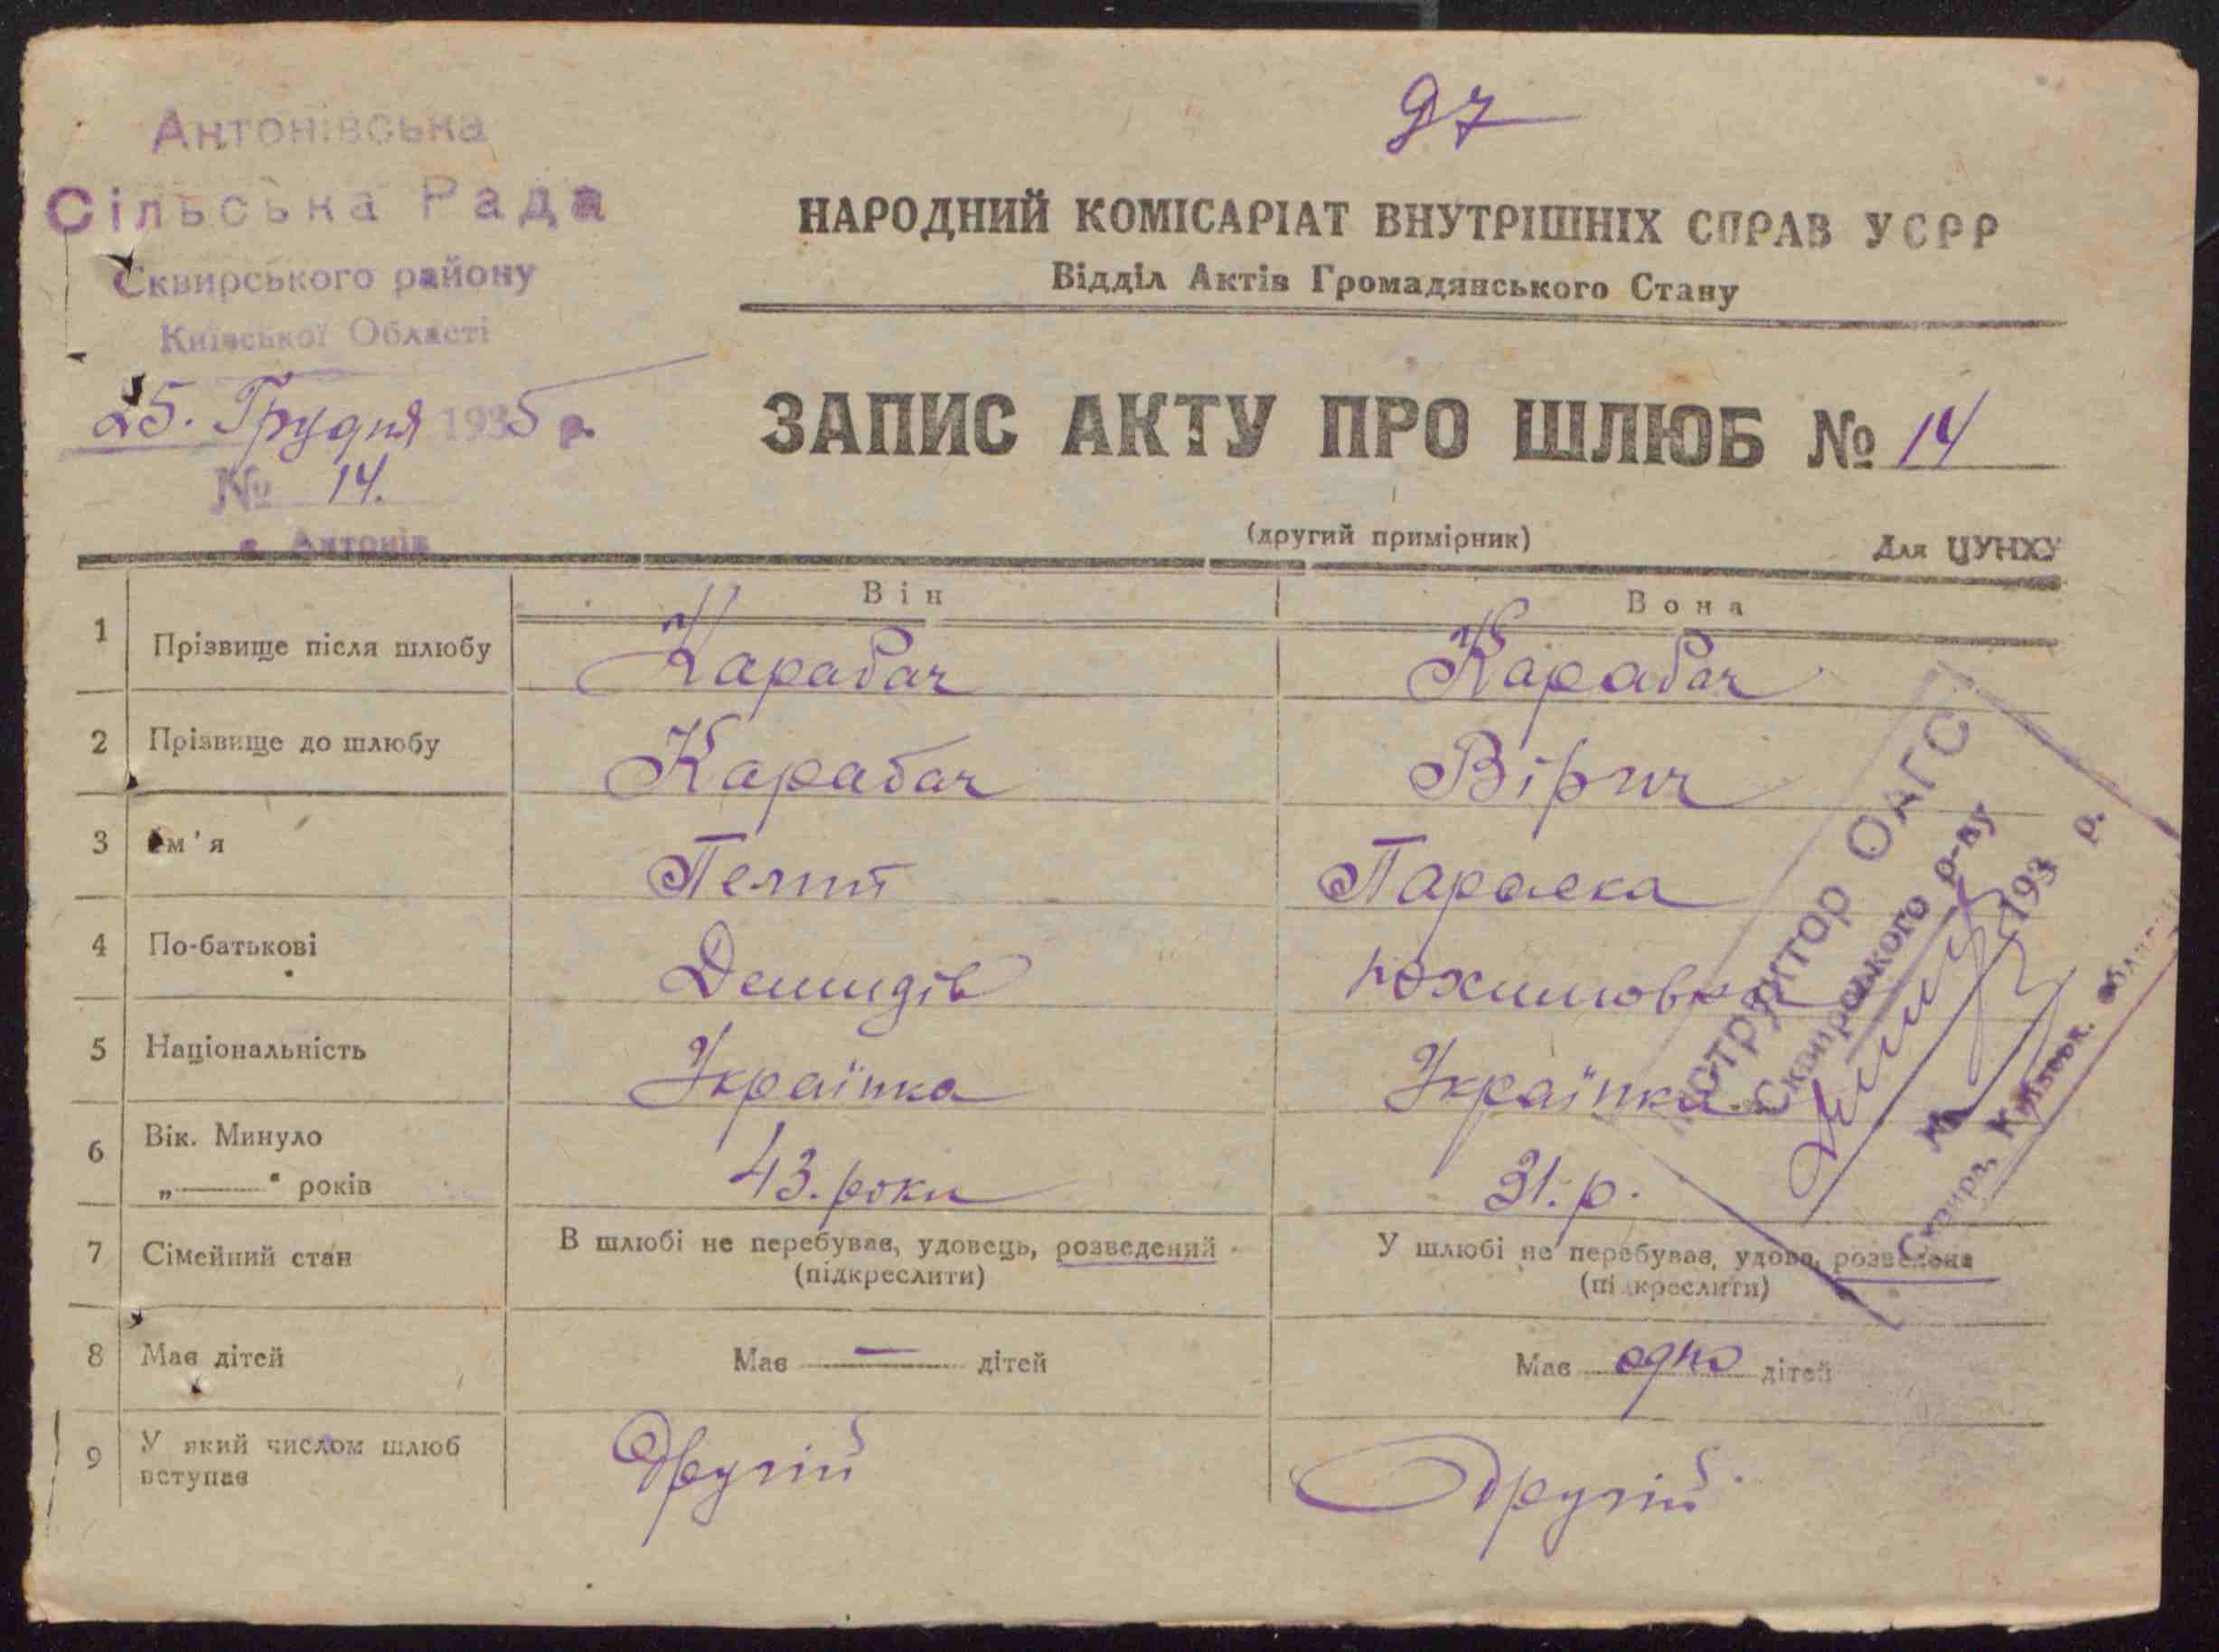 Антонівська
Сільська Рада
Сквирського району
Київської Області
25. Грудня 1935 р.
№ 14.
с. Антонів
97
НАРОДНИЙ КОМІСАРІАТ ВНУТРІШНІХ СПРАВ УСРР
Відділ Актів Громадянського Стану
ЗАПИС АКТУ ПРО ШЛЮБ № 14
(другий примірник)
Для ЦУНХУ
Він
Вона
1 Прізвище після шлюбу Карабач Карабач
2 Прізвище до шлюбу Карабач Вірич
3 Ім'я Параска
4 По-батькові Демидів
5 Національність Українка Українка
6 Вік. Минуло 43. роки 31. р.
„ — " років
7 Сімейний стан В шлюбі не перебував, удовець, розведений У шлюбі не перебував, удова, розведена
(підкреслити) (підкреслити)
8 Має дітей Має — дітей Має одно дітей
9 У який числом шлюб Другій Другій
вступає
Інструктор ОАГС
Сквирського р-ну
193 р.
№
Сквира, Київськ. області